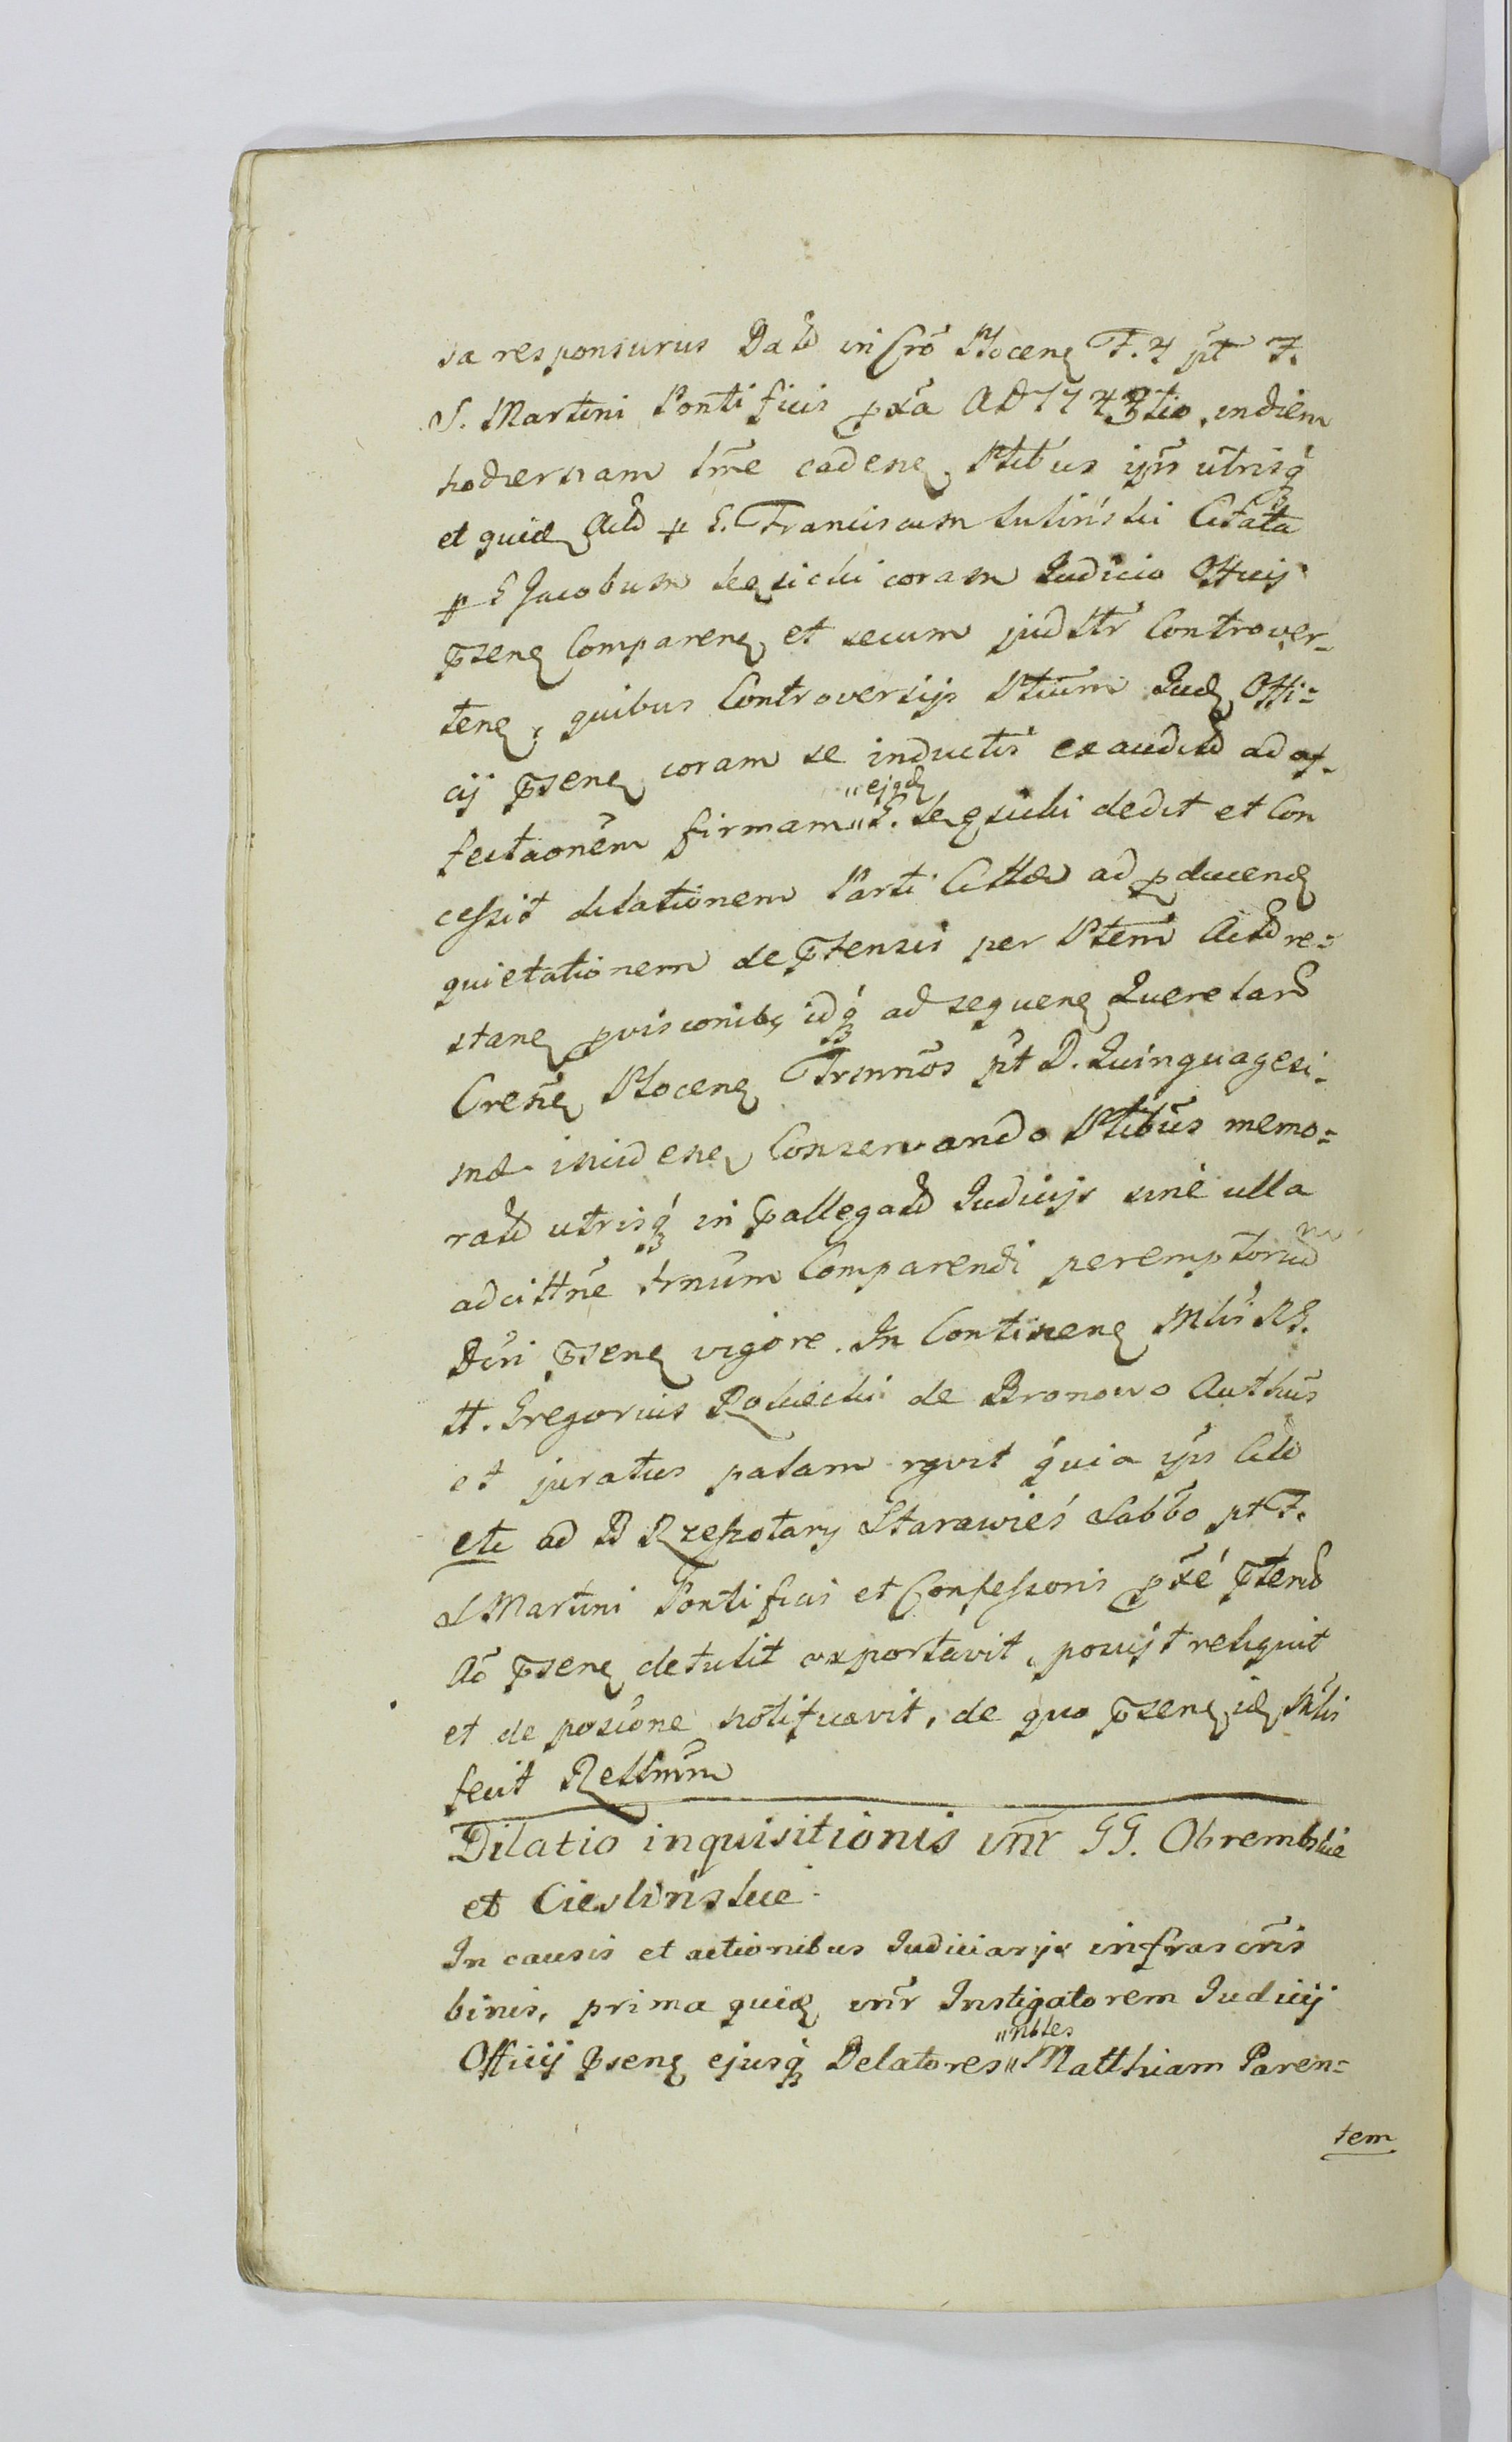 sa responsurus Datt in Cro Plocen F. 4 pt F.
S. Martini Pontificis pxa AD 1743tio, in diem
hodiernam trme caden, Ptibus ipis utrisq
et quid Actt p G. Franciscum Luliński Citata
p G Jacobum coram Judicio Officij
psen Comparen et secum judltr Controver-
ten, quibus Controversijs Ptium Jud Offi=
cij psen coram se inductis exauditt ad af-
fectaonem firmam "ejqd" G. dedit et Con
cessit dilationem Parti Cittae ad pducend
quietationem de ptensis per Ptem Actt re=
stan pvisconibq idq ad sequen Querelarr
Cresne Plocen Trmnos pt D. Quinquagesi-
mae inciden, Conservando Ptibus memo=
ratt utrisq in pallegatt Judicijs sine ulla
adcittne trnum Comparendi peremptoriu m
Dcri psen vigore. In Continen Mlis RG.
tt. Gregorius Rokicki de Bronowo Authus
et juratus palam rgvit quia ips Citt
etc ad B Rzeszotary Starawieś Sabbo pt F.
S Martini Pontificis et Confessoris pxe ptend
Ao psen detulit exportavit, posujt reliquit
et de posicione notificavit, de quo psen id Mlis
fecit Rellnum
Dilatio inquisitionis intr GG. Obrembskie
et Cieslińskie.
In causis et actionibus Judiciarijs infrascris
binis, prima quid intr Instigatorem Judicij
Officij psen ejusq Delatores "nbles" Matthiam Paren=
tem